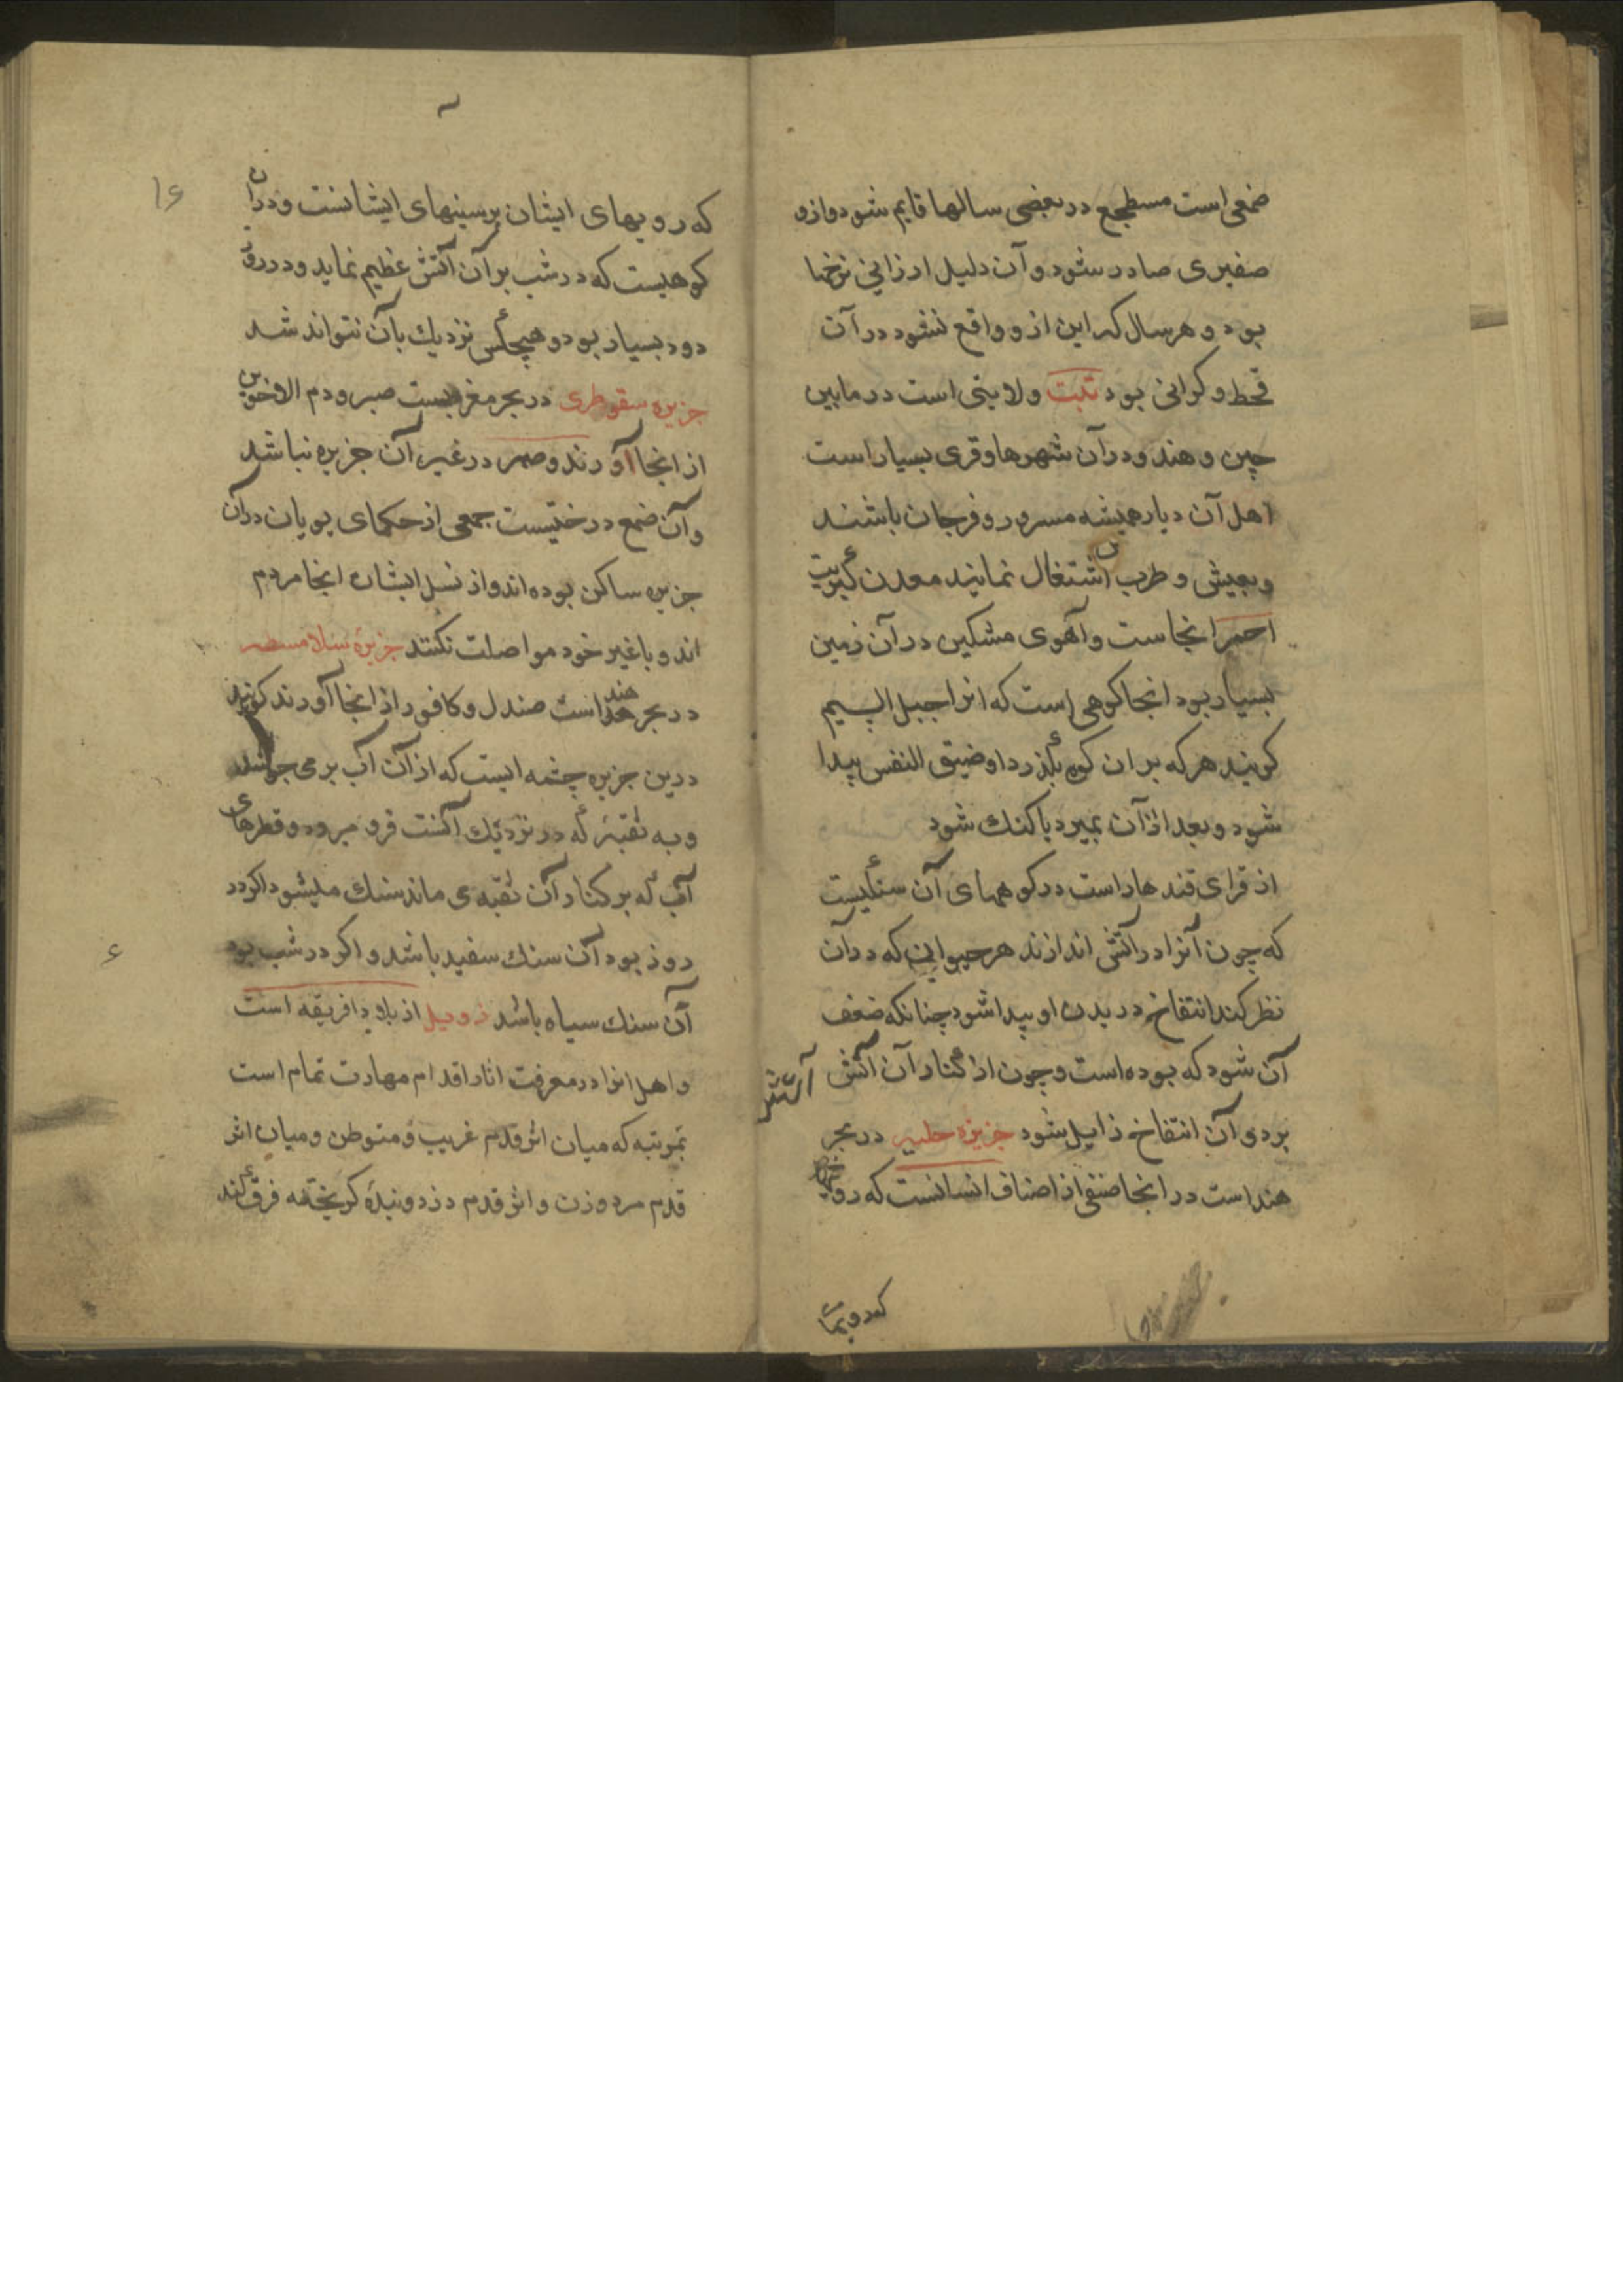 ضمغی است مسطجع در بعضی سالها قایم شود و ازو
صفیری صادر شود و آن دلیل ارزانی نرخها
بود و هر سال که این ازو واقع نشود در آن
قحط و کرانی بود تبت ولایتی است در مابین
چین و هند و در آن شهرها و قری بسیار است
اهل آن دیار همیشه مسرور و فرحان باشند
و بعیش و طرب اشتغال نمایند معدن کبریت
احمر انجاست و آهوی مشکین در آن زمین
بسیار بود انجا کوهی است که انرا جبل السیم
کویند هر که بر ان کوه بکذرد او ضیق النفس پیدا
شود و بعد از آن بمیرد یا کنك شود
از قرای قندهار است در کوههای آن سنکیست
که چون آنرا در آتش اندازند هر حیوانی که در آن
نظر کند انتفاخ در بدن او پیدا شود چنانکه ضعف
آن شود که بوده است و چون از کنار آن آتش
آتش
بردی آن انتفاخ زایل شود جزیره در بحر
هند است در انجا صنفی از اصناف انسانست که روی
که رویهای ایشان بر سینهای ایشانست و در ان
کوهیست که در شب بر آن آتش عظیم نماید و در روز
دود بسیار بود و هیچکس نزدیك بآن نتواند شد
جزیره سقوطری در بحر مغربست صبر و دم الاخوین
از انجا آورند و صبر در غیر آن جزیره نباشد
و آن ضمغ درختیست جمعی از حکمای یونان در آن
جزیره ساکن بوده اند و از نسل ایشان انجا مردم
اند و با غیر خود مواصلت نکنند جزیرۀ سلامسط
در بحر هند است صندل و کافور از انجا آورند کویند
درین جزیره چشمه ایست که از آن آب بر می جوشد
و به ثقبۀ که در نزدیك آنست فرو میرود و قطرهای
آب که بر کنار آن ثقبه می ماند سنك میشود اکر در
روز بود آن سنك سفید باشد و اکر در شب بود
آن سنك سیاه باشد زویل از بلاد افریقه است
و اهل انرا در معرفت اثار اقدام مهارت تمام است
بمرتبه که میان اثر قدم غریب و متوطن و میان اثر
قدم مرد و زن و اثر قدم دزد و بندۀ کریخته فرق کند